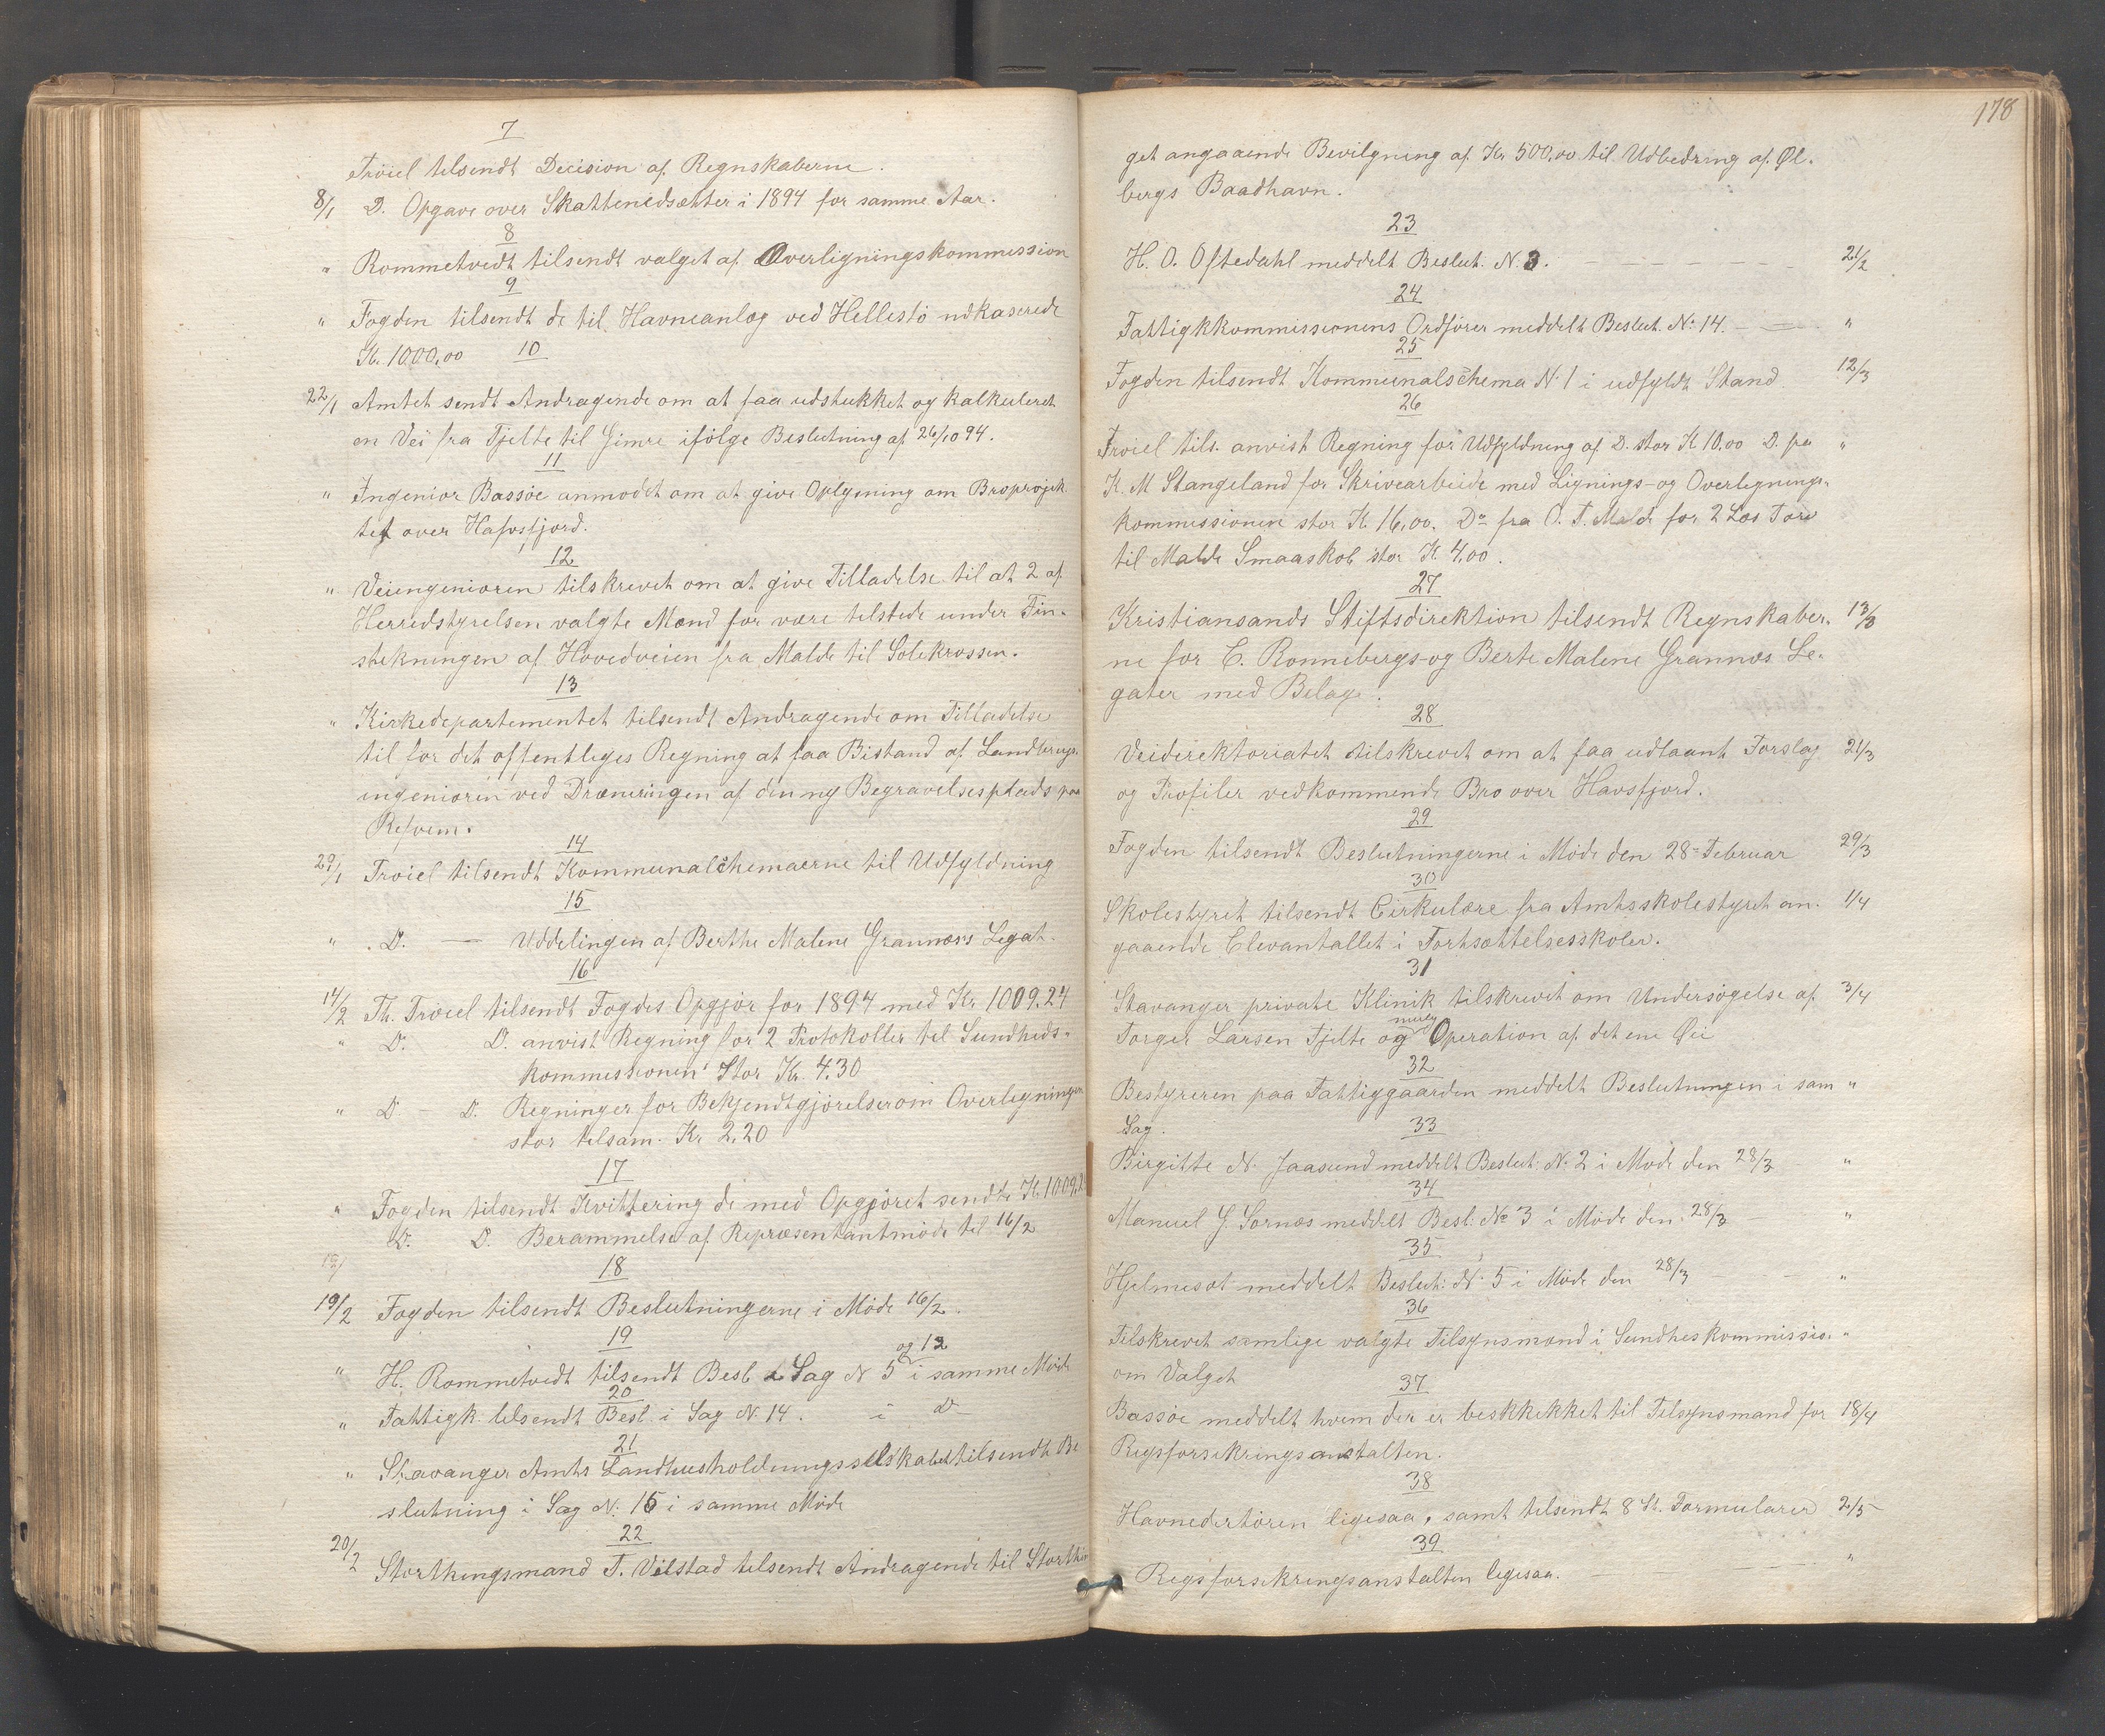 7
Troiel tilsendt Decision af Regnskaberne.
8/1 D. Opgave over Skattenedsætter i 1894 for samme Aar.
8
" Rommetvedt tilsendt valget af Overligningskommission
9
" Fogden tilsendt de til Havneanlæg ved Hellestö udkaserede
Kr. 1000,00
10
22/1 Amtet sendt Andragende om at faa udstukket og kalkuleret
en Vei fra Tjelte til Gimre ifölge Beslutning af 26/10 94.
11
" Ingeniör Bassöe anmodet om at give Oplysning om Broprojek
tet over Hafsfjord.
12
" Veiingeniören tilskrevet om at give Tilladelse til at 2 af
Herredstyrelsen valgte Mænd for være tilstede under Fin-
stikningen af Hovedveien fra Malde til Solekrossen.
13
" Kirkedepartementet tilsendt Andragende om Tilladelse
til for det offentliges Regning at faa Bistand af Landbrugs-
ingeniören ved Dræneringen af den ny Begravelsesplads paa
Refvem.
14
29/1 Troiel tilsendt Kommunalschemaerne til Udfyldning
15
" D. — Uddelingen af Berthe Malene Grannæs's Legat.
16
14/2 Th. Troiel tilsendt Fogdes Opgjör for 1894 med Kr. 1009.24
" D. D. anvist Regning for 2 Protokoller til Sundheds-
kommissionen Stor Kr. 4.30
" D. - D. Regninger for Bekjendtgjörelser om Overligningen
stor tilsam. Kr. 2.20
17
" Fogden tilsendt Kvittering de med Opgjöret sendte K. 1009,2
D. D. Berammelse af Repræsentantmöde til 16/2
18
19/2 Fogden tilsendt Beslutningerne i Möde 16/2.
19
og 12
" H. Rommetvedt tilsendt Besl i Sag N 5 i samme Möde
20
" Fattigk. tilsendt Besl. i Sag N. 14. i D
21
" Stavanger Amts Landhusholdningsselskabet tilsendt Be
slutning i Sag N. 15 i samme Möde
22
20/2 Storthingsmand T. Vilstad tilsendt Andragende til Storthin
178
get angaaende Bevilgning af Kr 500,00 til Udbedring af Øl-
bergs Baadhavn.
23
H. O. Oftedahl meddelt Beslut. N. 3. 21/2
24
Fattigkkommissionens Ordförer meddelt Beslut. No 14. "
25
Fogden tilsendt Kommunalschema N. 1 i udfyldt Stand 12/3
26
Troiel tils. anvist Regning for Udfyldning af D. stor K 10,00 D. fra "
K. M Stangeland for Skrivearbeide med Lignings- og Overlignings-
kommissionen stor K. 16,00. Do fra O. T. Malde for 2 Læs Torv
til Malde Smaaskol stor K 4,00.
27
Kristiansands Stiftsdirektion tilsendt Regnskaber- 13/3
ne for C. Ronnebergs- og Berte Malene Grannæs Le-
gater med Belage.
28
Veidirektoriatet tilskrevet om at faa udlaant Forslag 21/3
og Profiler vedkommende Bro over Havsfjord.
29
Fogden tilsendt Beslutningerne i Möde den 28- Februar 29/3
30
Skolestyret tilsendt Cirkulære fra Amtsskolestyret an- 1/4
gaaende Elevantallet i Fortsættelsesskoler.
31
Stavanger private Klinik tilskrevet om Undersögelse af 3/4
mulig
Torger Larsen Tjelte og Operation af det ene Øie
32
Bestyreren paa Fattiggaarden meddelt Beslutningen i sam "
Sag.
33
Birgitte N. Jaasund meddelt Beslut. N. 2 i Möde den 28/3 "
34
Manuel G. Sörnæs meddelt Besl. No 3 i Möde den 28/3 "
35
Hjelmesæt meddelt Beslut. N. 5 i Möde den 28/3 "
36
Tilskrevet samlige valgte Tilsynsmænd i Sundheskommissio- "
om Valget
37
Bassöe meddelt hvem der er beskkikket til Tilsynsmand for 18/4
Rigsforsikringsanstalten.
38
Havnedirtören ligesaa, samt tilsendt 8 St. Formularer 2/5
39
Rigsforsikringsanstalten ligesaa. "